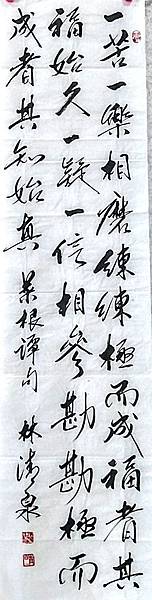 一苦一樂相磨練練極而成福者其
福始久一疑一信相參勘勘極而
成者其知始真 菜根譚句 林清泉